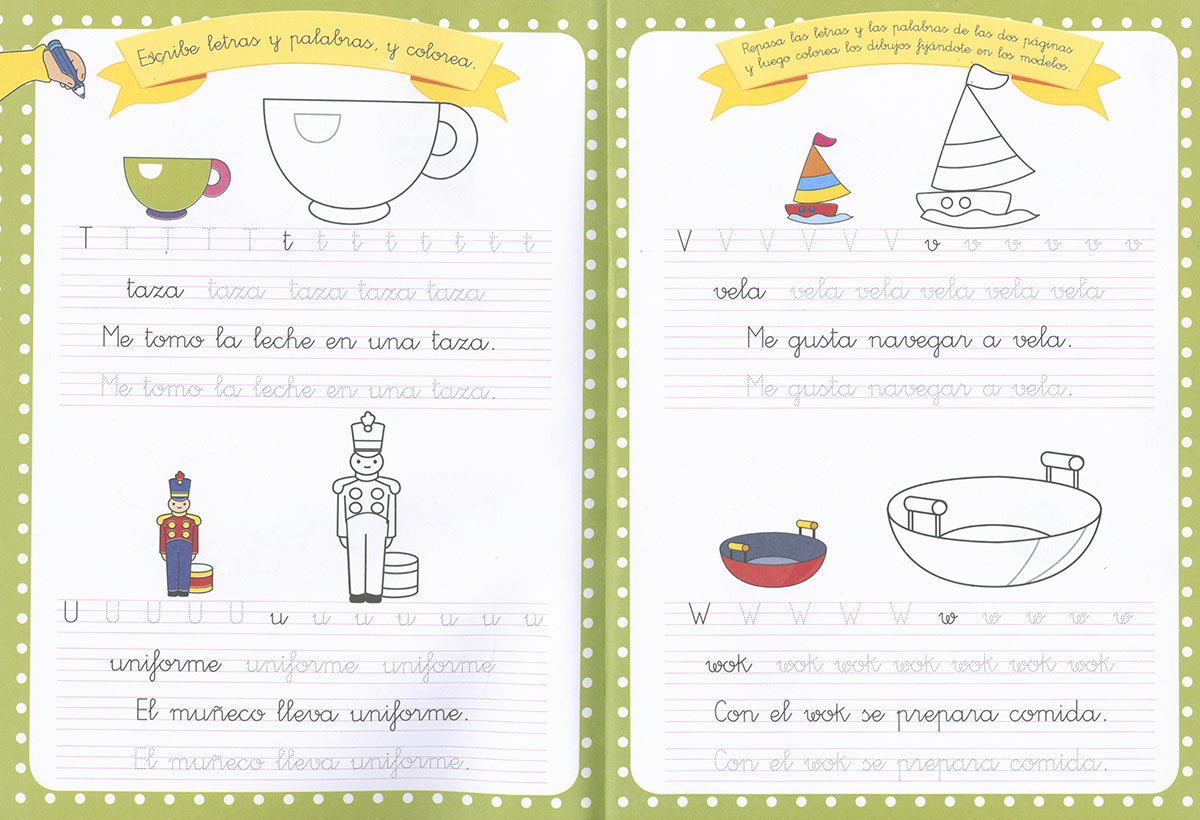 Escribe letras y palabras, y colorea.
T T T T T t t t t t t t t
taza taza taza taza taza
Me tomo la leche en una taza.
Me tomo la leche en una taza.
U U U U U u u u u u u u
uniforme uniforme uniforme
El muñeco lleva uniforme.
El muñeco lleva uniforme.
Repasa las letras y las palabras de las dos páginas
y luego colorea los dibujos fijándote en los modelos.
V V V V V V v v v v v v
vela vela vela vela vela vela
Me gusta navegar a vela.
Me gusta navegar a vela.
W W W W W w w w w w
wok wok wok wok wok wok wok
Con el wok se prepara comida.
Con el wok se prepara comida.